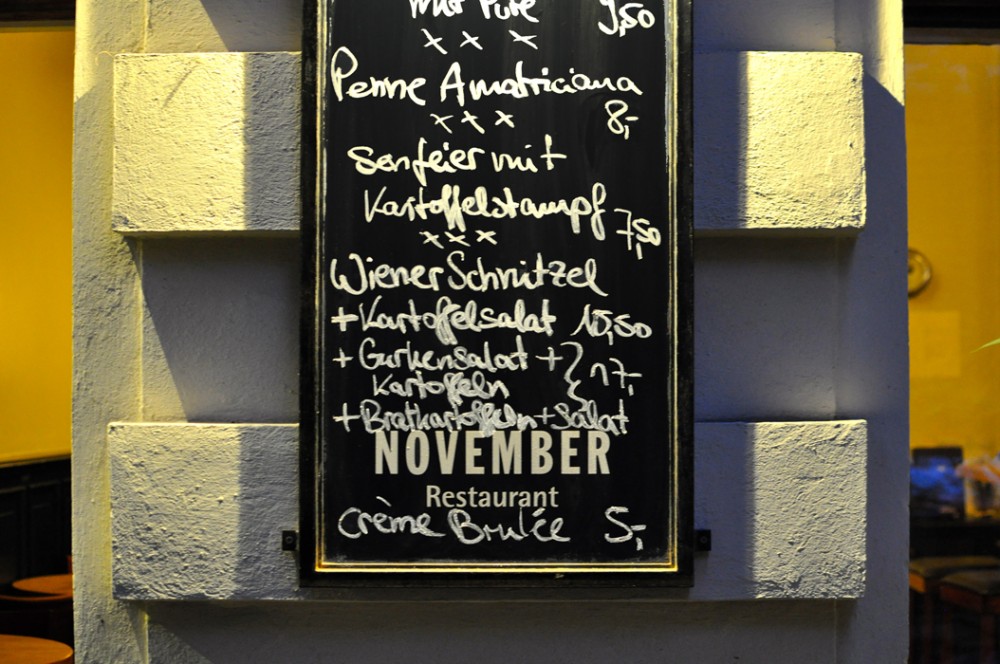 mit Pute 9,50
x x x
Penne Amatriciana
x x x 8,-
Senfeier mit
Kartoffelstampf 7,50
x x x
Wiener Schnitzel
+ Kartoffelsalat 15,50
+ Gurkensalat +
Kartoffeln } 17,-
+ Bratkartoffeln + Salat
NOVEMBER
Restaurant
Crème Brulée 5,-